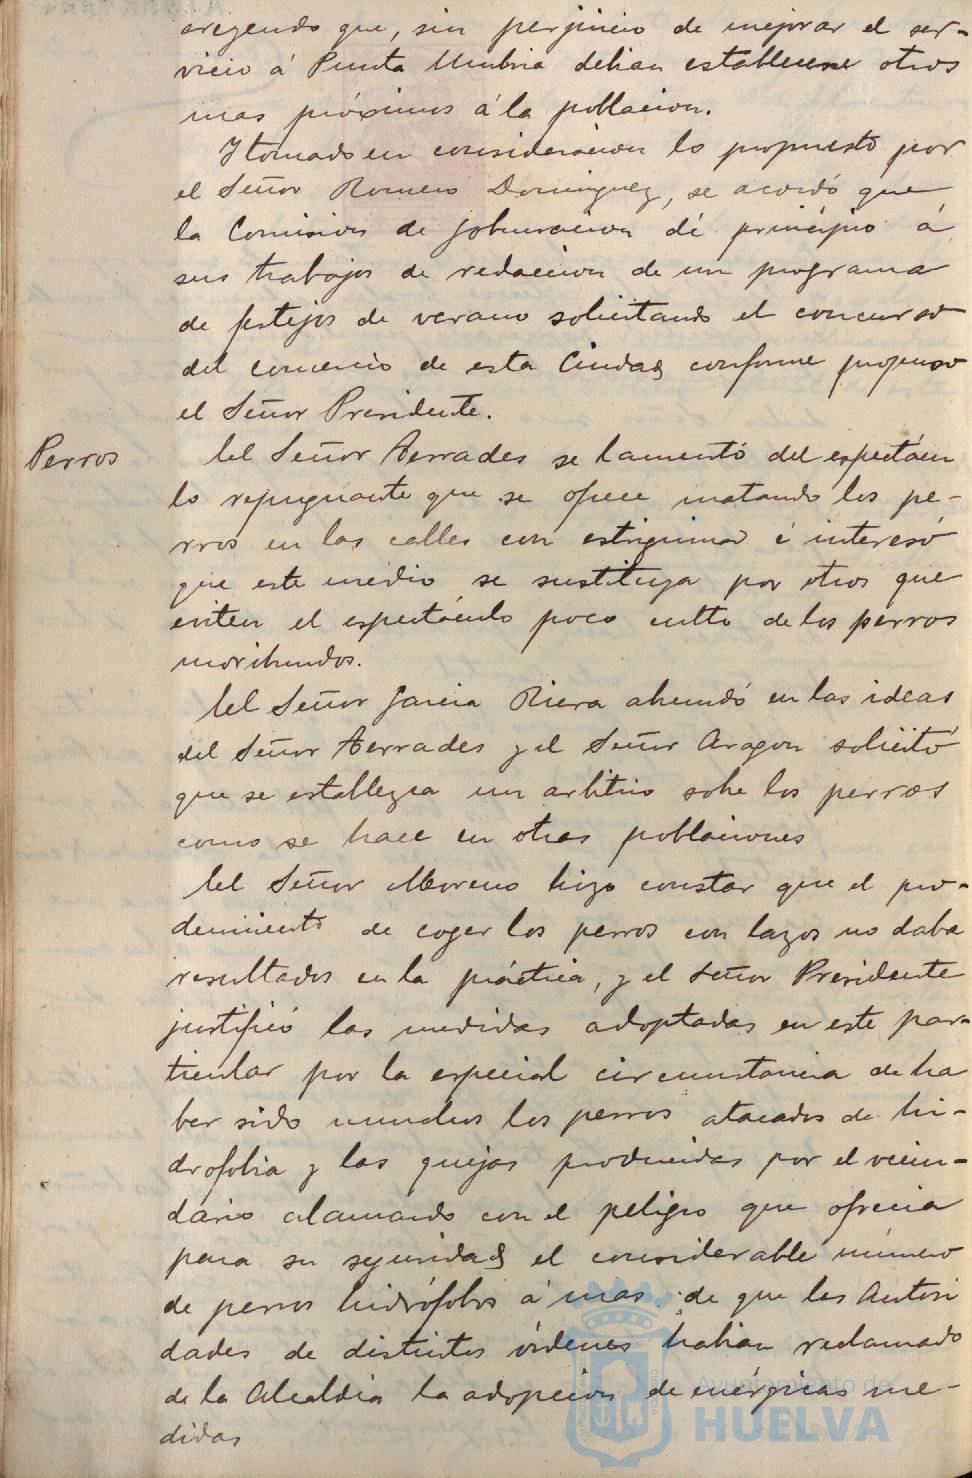 creyendo que, sin perjuicio de mejorar el ser-
vicio á Punta Umbria debian establecerse otros
mas próximos á la poblacion.
Y tomado en consideracion lo propuesto por
el Señor Romero Dominguez, se acordó que
la Comision de gobernacion dé principio á
sus trabajos de redaccion de un programa
de festejos de verano solicitando el concurso
del comercio de esta Ciudad conforme propuso
el Señor Presidente.
Perros
El Señor Terrades se lamentó del espectácu
lo repugnante que se ofrece matando los pe-
rros en las calles con estrignina é interesó
que este medio se sustituya por otros que
eviten el espectáculo poco culto de los perros
moribundos.
El Señor Garcia Riera abundó en las ideas
del Señor Terrades y el Señor Aragon solicitó
que se establezca un arbitrio sobre los perros
como se hace en otras poblaciones
El Señor Moreno hizo constar que el pro-
demiento de coger los perros con lazos no daba
resultados en la práctica, y el Señor Presidente
justificó las medidas adoptadas en este par-
ticular por la especial circunstancia de ha
ber sido muchos los perros atacados de hi-
drofobia y las quejas producidas por el vecin-
dario alarmado con el peligro que ofrecia
para su seguridad el considerable número
de perros hidrófobos á mas de que las Autori
dades de distintos órdenes habian reclamado
de la Alcaldia la adopcion de enérgicas me-
didas
Ayuntamiento de
HUELVA